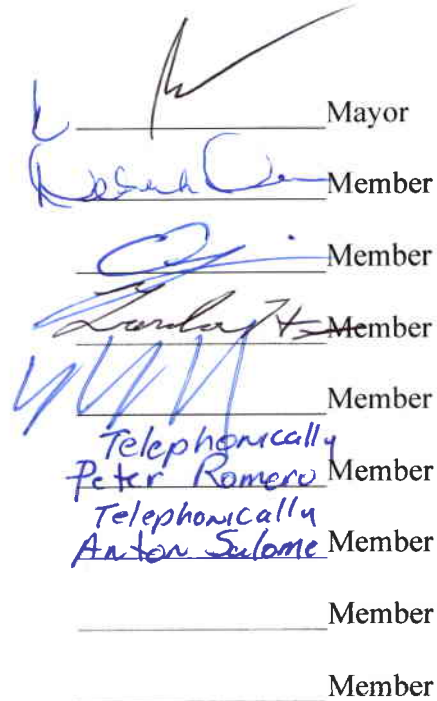 Mayor
Member
Member
Member
Member
Telephonically
Peter Romero Member
Telephonically
Anton Salome Member
Member
Member